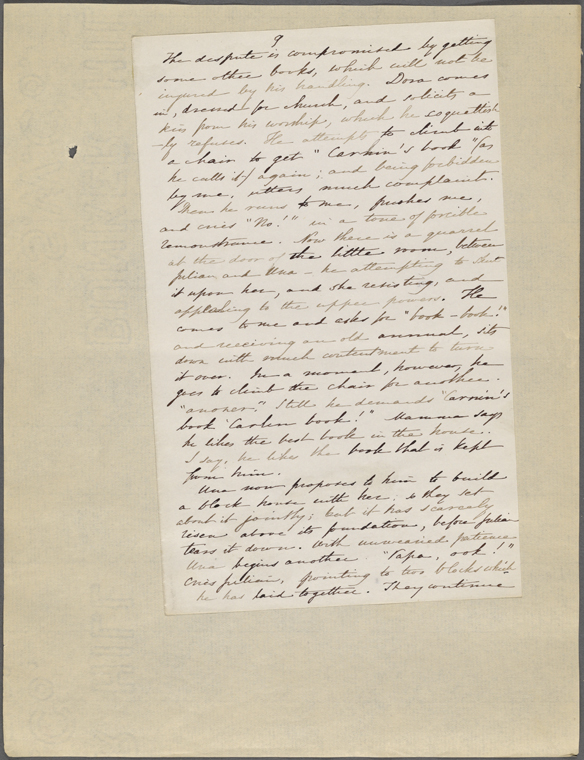 9
The dispute is compromised by getting
some other books, which will not be
injured by his handling. Dora comes
in, dressed for church, and solicits a
kiss from his worship, which he coquettish
-ly refuses. He attempts to climb into
a chair to get "Carnin's book" (as
he calls it) again; and being forbidden
by me, utters much complaint.
Then he runs to me, pushes me,
and cries "No!" in a tone of forcible
remonstrance. Now there is a quarrel
at the door of the little room, between
Julian and Una - he attempting to shut
it upon her, and she resisting, and
appealing to the upper powers. He
comes to me and asks for "book - book!"
and receiving an old annual, sits
down with much contentment to turn
it over. In a moment, however, he
goes to climb the chair for another.
"anoner." Still he demands "Carnin's
book Carlin book!" Mamma says
he likes the best book in the house.
I say, he likes the book that is kept
from him.
Una now proposes to him to build
a block house with her; so they set
about it jointly; but it has scarcely
risen above its foundation, before Julian
tears it down. With unwearied patience
Una begins another. "Papa, ook!"
cries Julian, pointing to two blocks which
he has laid together. They continue